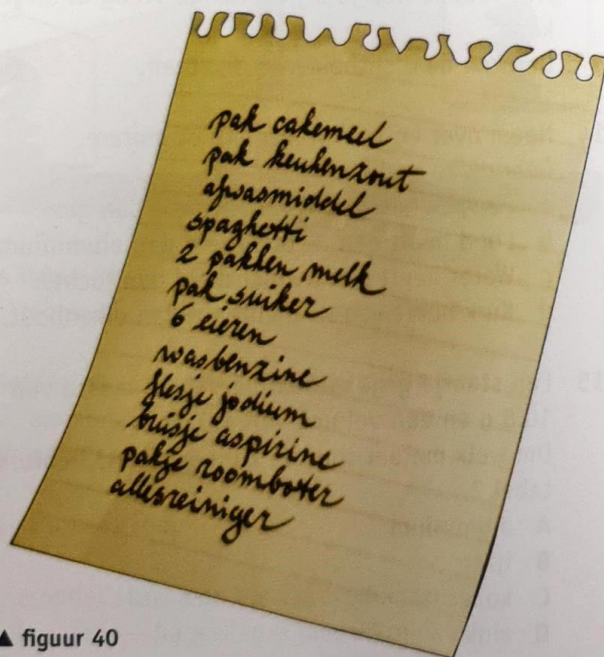 pak cakemeel
pak keukenzout
afwasmiddel
spaghetti
2 pakken melk
pak suiker
6 eieren
wasbenzine
flesje jodium
buisje aspirine
pakje roomboter
allesreiniger
▲ figuur 40